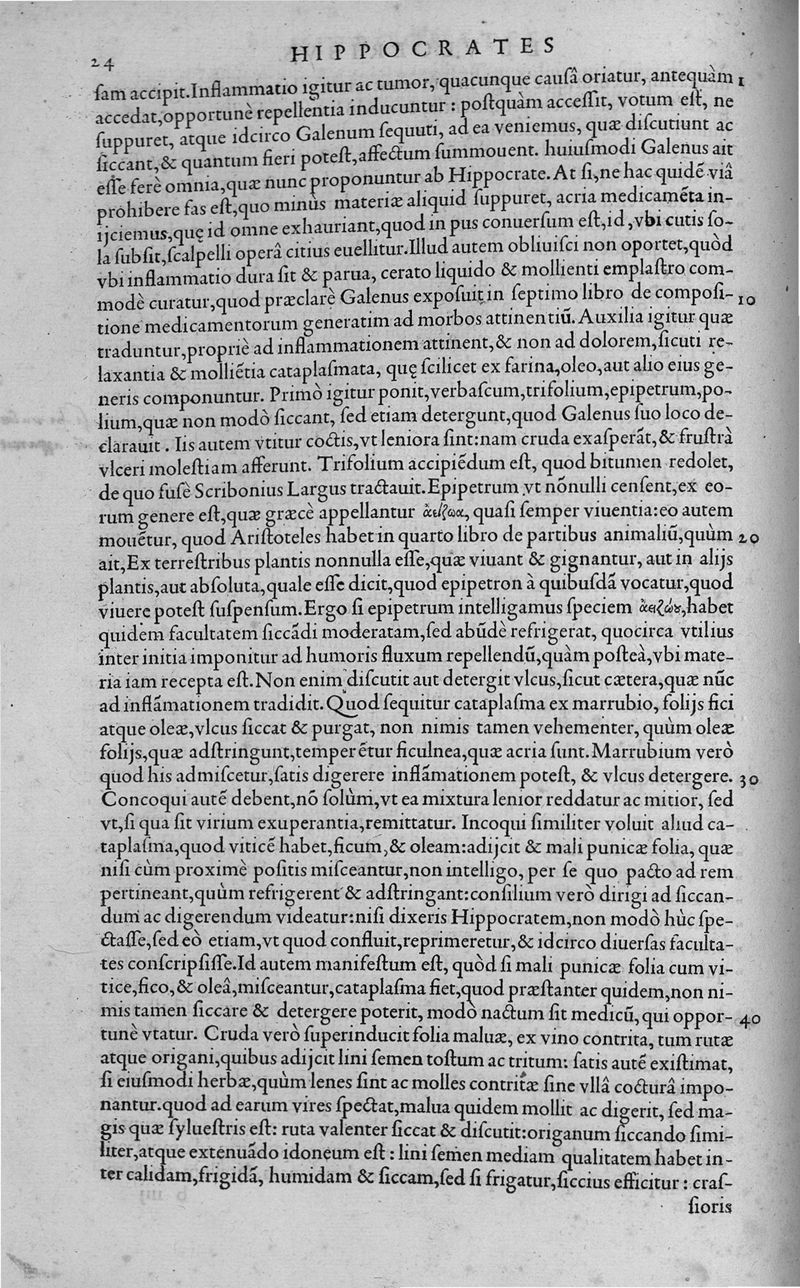 24 HIPPOCRATES
ſam accipit.Inflammatio igitur ac tumor, quacunque cauſâ oriatur, antequàm 1
accedat,opportunè repellentia inducuntur : poſtquàm acceſſit, votum eſt, ne
ſuppuret, atque idcirco Galenum ſequuti, ad ea veniemus, quæ diſcutiunt ac
ſiccant,& quantum fieri poteſt,affectum ſummouent. huiuſmodi Galenus ait
eſſe ferè omnia,quæ nunc proponuntur ab Hippocrate. At ſi,ne hac quidẽ viâ
prohibere fas eſt,quo minùs materiæ aliquid ſuppuret, acria medicamẽta in-
ijciemus,quę id omne exhauriant,quod in pus conuerſum eſt,id ,vbi cutis ſo-
la ſubſit,ſcalpelli operâ citius euellitur.Illud autem obliuiſci non oportet,quòd
vbi inflammatio dura ſit & parua, cerato liquido & mollienti emplaſtro com-
modè curatur,quod præclarè Galenus expoſuit,in ſeptimo libro de compoſi- 10
tione medicamentorum generatim ad morbos attinentiũ. Auxilia igitur quæ
traduntur,propriè ad inflammationem attinent,& non ad dolorem,ſicuti re-
laxantia & molliẽtia cataplaſmata, quę ſcilicet ex farina,oleo,aut alio eius ge-
neris componuntur. Primò igitur ponit,verbaſcum,trifolium,epipetrum,po-
lium,quæ non modò ſiccant, ſed etiam detergunt,quod Galenus ſuo loco de-
clarauit . Iis autem vtitur coctis,vt leniora ſint:nam cruda exaſperãt,& fruſtrà
vlceri moleſtiam afferunt. Trifolium accipiẽdum eſt, quod bitumen redolet,
de quo fuſè Scribonius Largus tractauit.Epipetrum ,vt nõnulli cenſent,ex eo-
rum genere eſt,quæ græcè appellantur ἀείζωα, quaſi ſemper viuentia:eo autem
mouẽtur, quod Ariſtoteles habet in quarto libro de partibus animaliũ,quùm 20
ait,Ex terreſtribus plantis nonnulla eſſe,quæ viuant & gignantur, aut in alijs
plantis,aut abſoluta,quale eſſe dicit,quod epipetron à quibuſdã vocatur,quod
viuere poteſt ſuſpenſum.Ergo ſi epipetrum intelligamus ſpeciem ἀειζώȣ,habet
quidem facultatem ſiccãdi moderatam,ſed abũdè refrigerat, quocirca vtilius
inter initia imponitur ad humoris fluxum repellendũ,quàm poſteà,vbi mate-
ria iam recepta eſt.Non enim diſcutit aut detergit vlcus,ſicut cætera,quæ nũc
ad inflãmationem tradidit. Quod ſequitur cataplaſma ex marrubio, folijs fici
atque oleæ,vlcus ſiccat & purgat, non nimis tamen vehementer, quùm oleæ
folijs,quæ adſtringunt,temperẽtur ficulnea,quæ acria ſunt.Marrubium verò
quod his admiſcetur,ſatis digerere inflãmationem poteſt, & vlcus detergere. 30
Concoqui autẽ debent,nõ ſolùm,vt ea mixtura lenior reddatur ac mitior, ſed
vt,ſi qua ſit virium exuperantia,remittatur. Incoqui ſimiliter voluit aliud ca-
taplaſma,quod viticẽ habet,ficum,& oleam:adijcit & mali punicæ folia, quæ
niſi cùm proximè poſitis miſceantur,non intelligo, per ſe quo pacto ad rem
pertineant,quùm refrigerent & adſtringant:conſilium verò dirigi ad ſiccan-
dum ac digerendum videatur:niſi dixeris Hippocratem,non modò hùc ſpe-
ctaſſe,ſed eò etiam,vt quod confluit,reprimeretur,& idcirco diuerſas faculta-
tes conſcripſiſſe.Id autem manifeſtum eſt, quòd ſi mali punicæ folia cum vi-
tice,fico,& oleâ,miſceantur,cataplaſma fiet,quod præſtanter quidem,non ni-
mis tamen ſiccare & detergere poterit, modò nactum ſit medicũ, qui oppor- 40
tunè vtatur. Cruda verò ſuperinducit folia maluæ, ex vino contrita, tum rutæ
atque origani,quibus adijcit lini ſemen toſtum ac tritum: ſatis autẽ exiſtimat,
ſi eiuſmodi herbæ,quùm lenes ſint ac molles contritæ ſine vllâ cocturâ impo-
nantur.quod ad earum vires ſpectat,malua quidem mollit ac digerit, ſed ma-
gis quæ ſylueſtris eſt: ruta valenter ſiccat & diſcutit:origanum ſiccando ſimi-
liter,atque extenuãdo idoneum eſt : lini ſemen mediam qualitatem habet in-
ter calidam,frigidã, humidam & ſiccam,ſed ſi frigatur,ſiccius efficitur : craſ-
ſioris